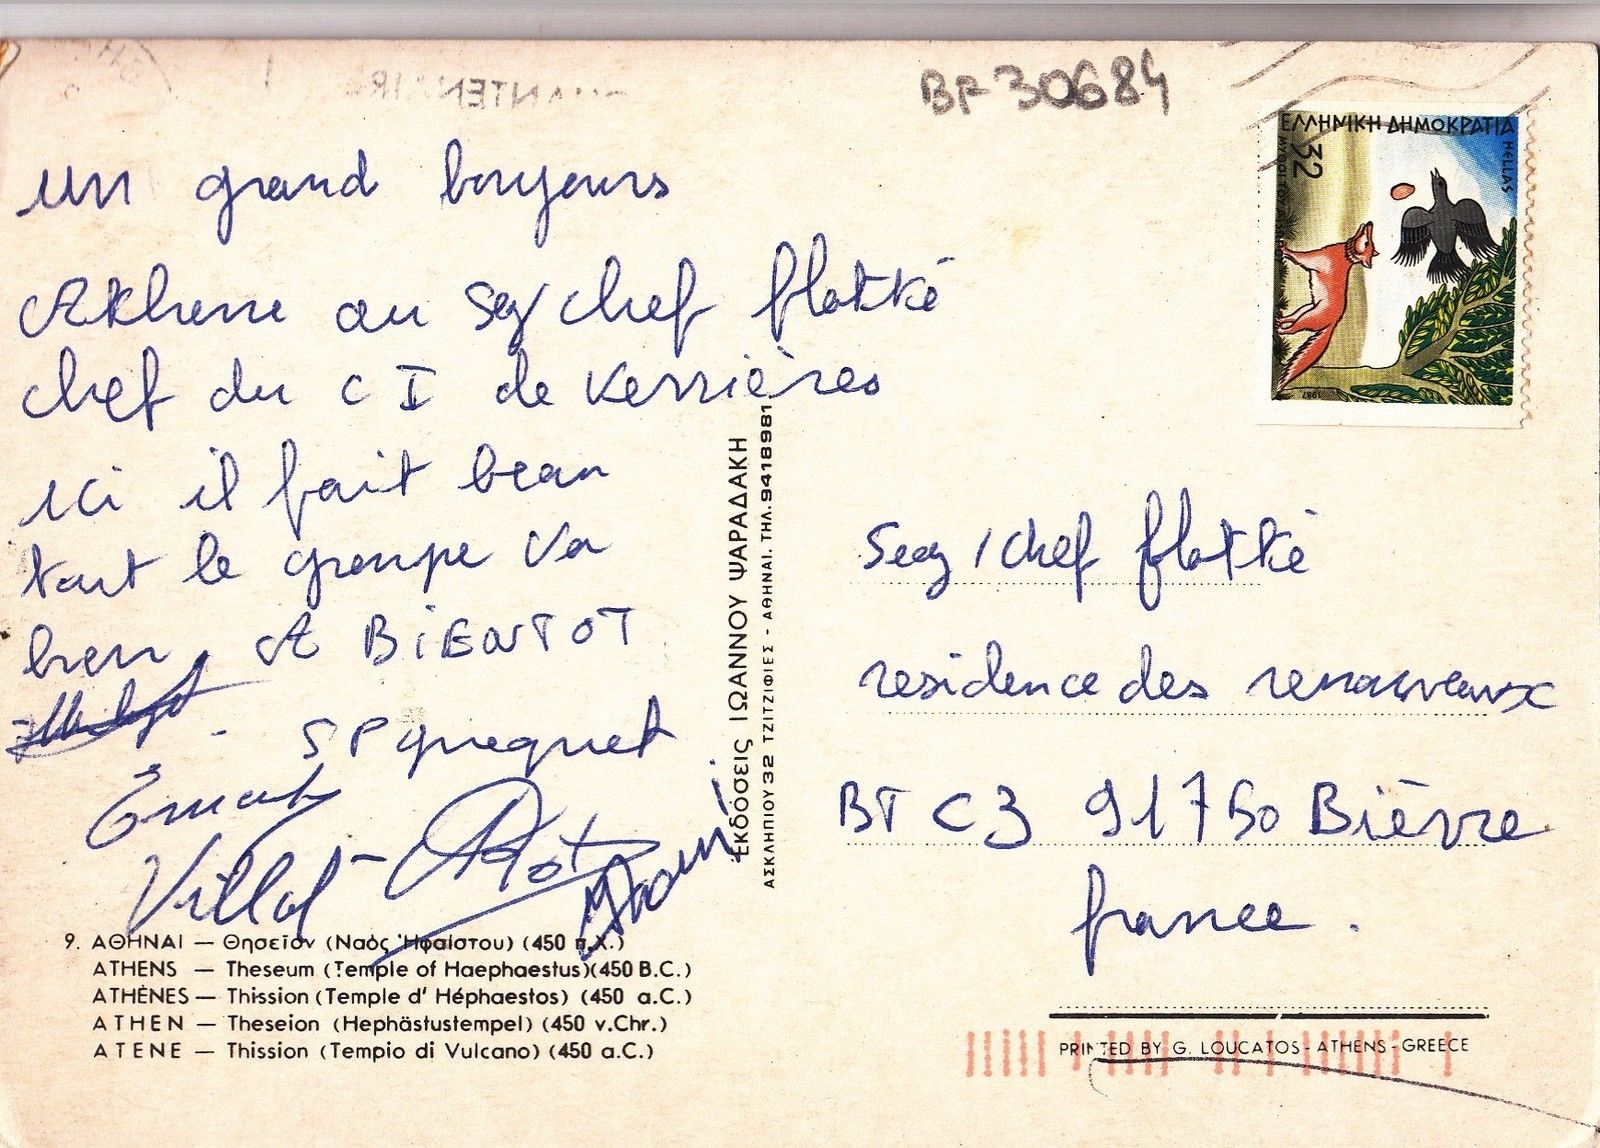 BF 30684
ΕΛΛΗΝΙΚΗ ΔΗΜΟΚΡΑΤΙΑ
HELLAS
32
1987
un grand bonjours
Athene au Serg/chef flotté
chef du C I de Verrières
ici il fait beau
tout le groupe va
bien. A BiENTOT
SP queguet
Ernest
Villot
Εκδόσεις ΙΩΑΝΝΟΥ ΨΑΡΑΔΑΚΗ
ΑΣΚΛΗΠΙΟΥ 32 ΤΖΙΤΖΙΦΙΕΣ - ΑΘΗΝΑΙ. ΤΗΛ. 9418981
9. ΑΘΗΝΑΙ — Θησεῖον (Ναὸς Ἡφαίστου) (450 π.Χ.)
ATHENS — Theseum (Temple of Haephaestus)(450 B.C.)
ATHÈNES — Thission (Temple d' Héphaestos) (450 a.C.)
ATHEN — Theseion (Hephästustempel) (450 v.Chr.)
ATENE — Thission (Tempio di Vulcano) (450 a.C.)
Serg/chef flotté
residence des renouveaux
BT C3 91750 Bièvre
france.
PRINTED BY G. LOUCATOS - ATHENS - GREECE